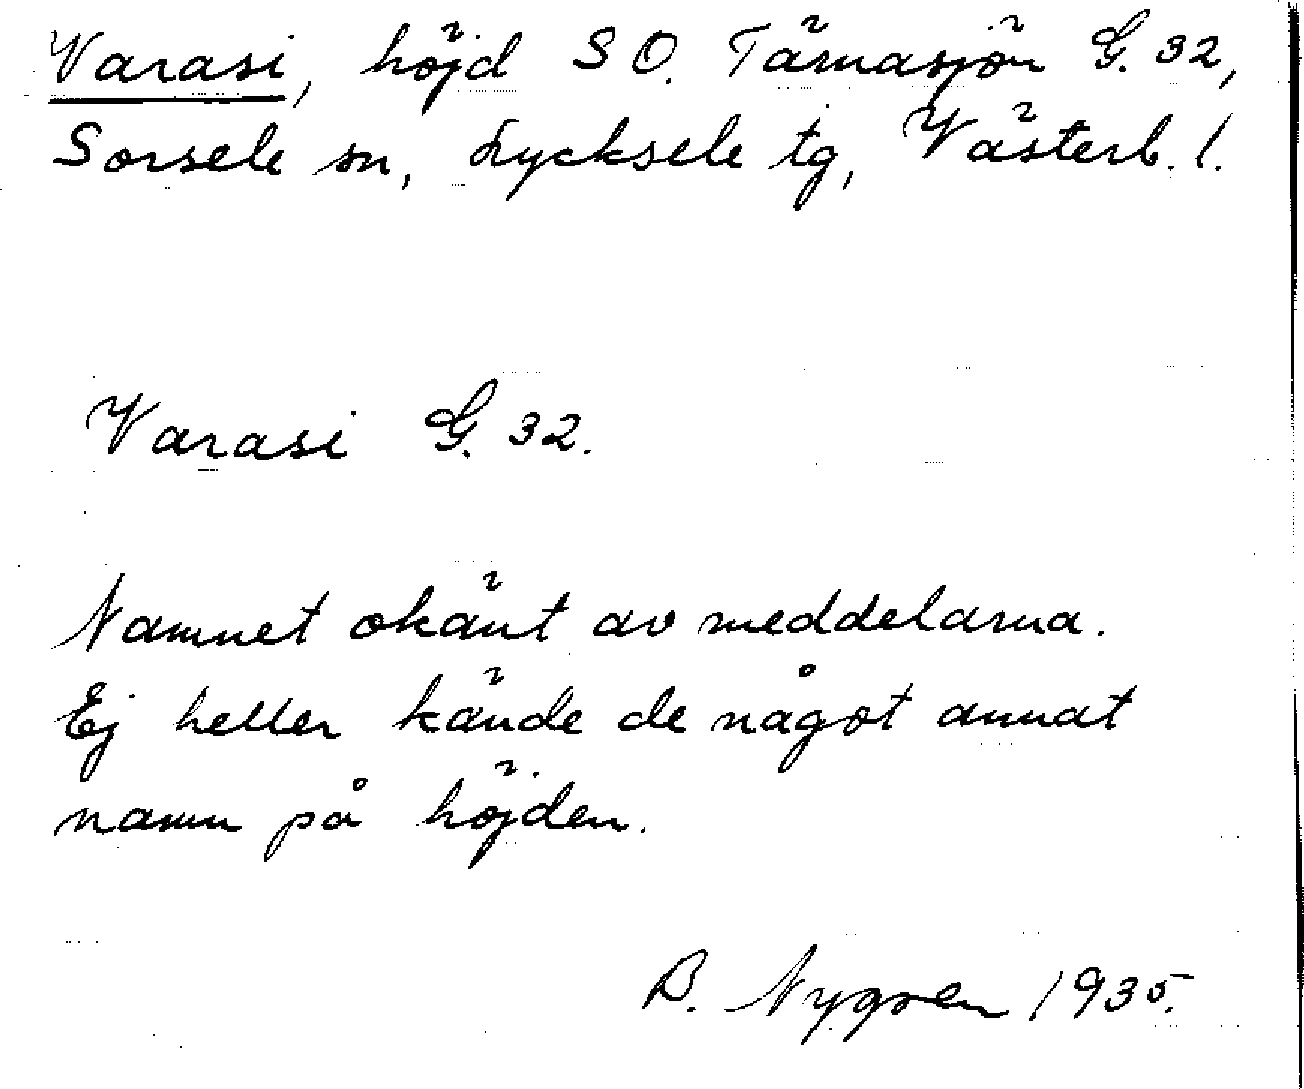 Varasi, höjd S O. Tärnasjön G. 32,
Sorsele sn, Lycksele tg, Västerb. l.
Varasi G. 32.
Namnet okänt av meddelarna.
Ej heller kände de något annat
namn på höjden.
B. Nygren 1935.